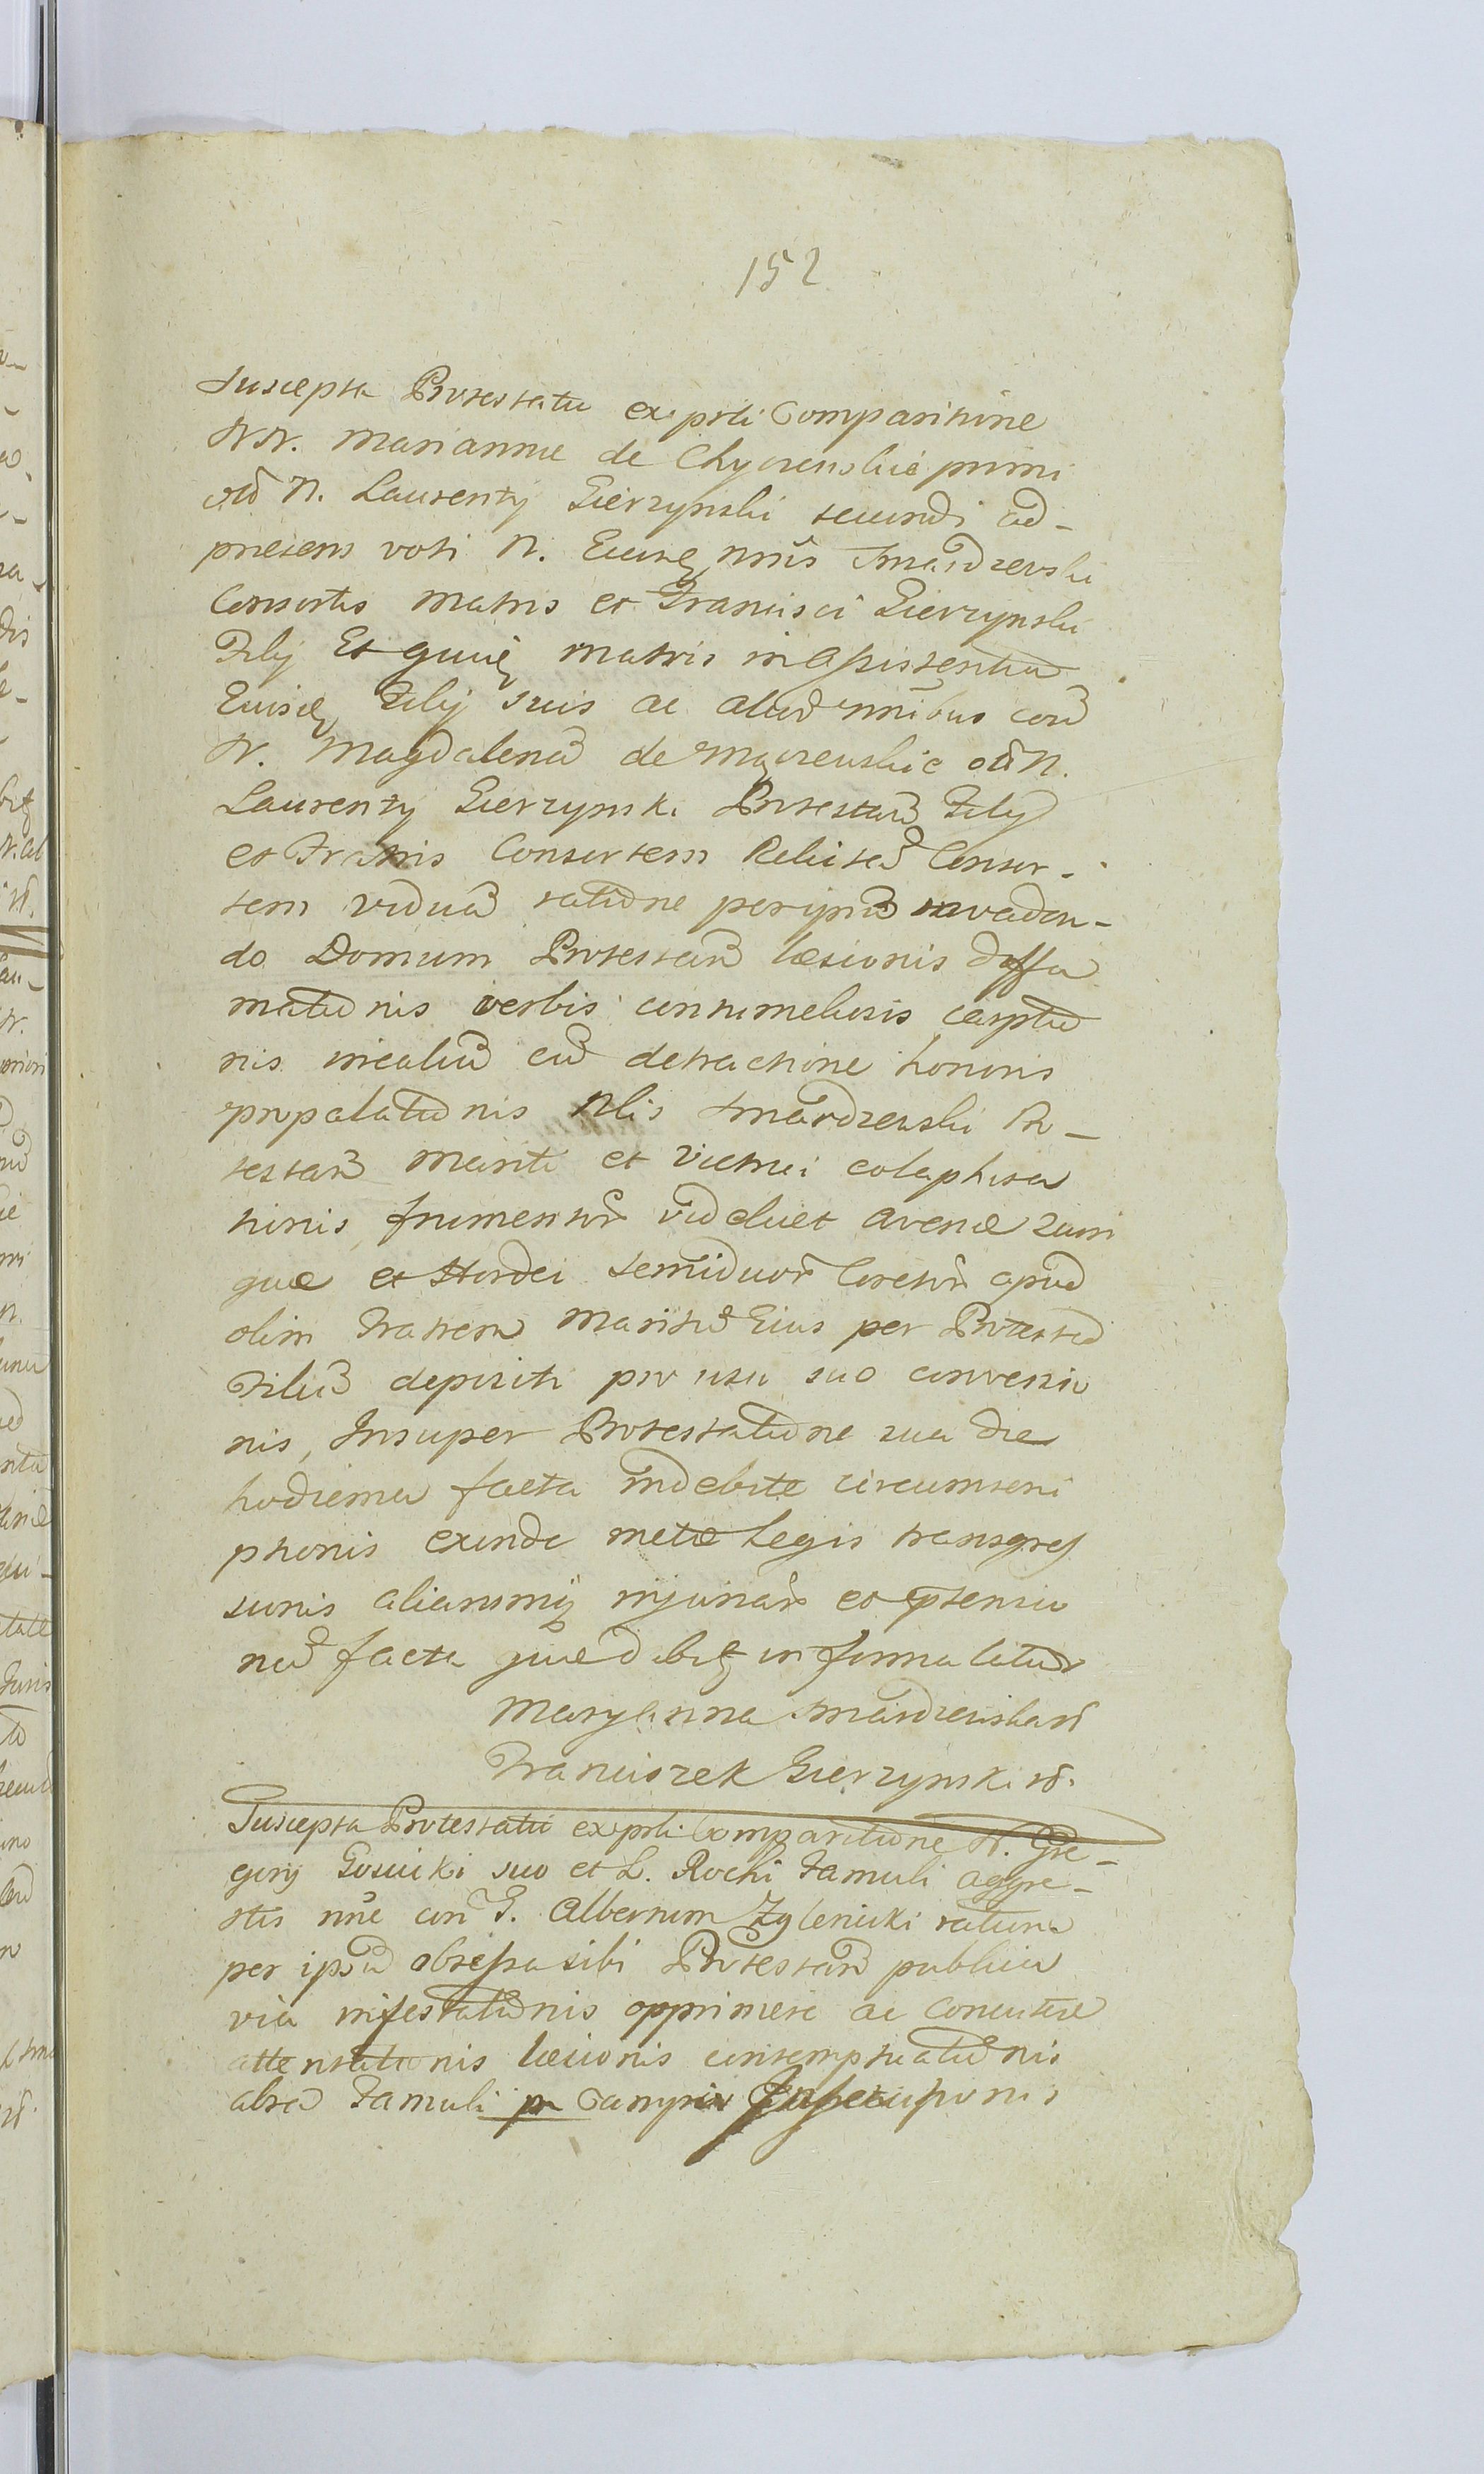 152
Suscepta Protestatio ex psti Comparitione
NN. Mariannæ de Chyczewskie primi
oīd N. Laurentij Gierzynski secundi ad-
præsens voti N. Smardzewski
Consortis matris et Francisci Gierzynski
Filij Et quidē matris in assistentia
Eiusdē Filij suis ac aliod nnibus coñ
N. Magdalenā de oīd N.
Laurentij Gierzynski Protestañ Filij
et Fratris Consortem Relictā Consor-
tem viduā ratione per ipsā invaden-
do Domum Protestañ læsionis diffa
mationis verbis contumeliosis carptio
nis inealiū cū detractione honoris
propalationis Nlis Smardzewski Pro-
testañ mariti et victrici colaphisa
tionis, frumentor̃ videlicet avenæ
quæ et Hordei semiduor̃ Coretor̃ apud
olim Fratrem maritū Eius per Protestañ
Filiū depositi pro usu suo conversio
nis, Insuper Protestatione sua die
hodierna facta indebite circumscri
ptionis exinde metæ Legis transgres
sionis aliarumq injuriar̃ et ptensio
nū facta quæ debitē in forma latior
Maryanna Smardzewska
Franciszek Gierzynski
Suscepta Protestatio ex psti Comparitione N. Gre-
gorij Gosucki suo et L. Rochi Famuli aggre-
stis nñe coñ G. Albertum Zglenicki ratione
per ipsū obsessa sibi Protestañ publica
via infestationis opprimere ac concutere
attentationis læsionis contemptuationis
Famuli